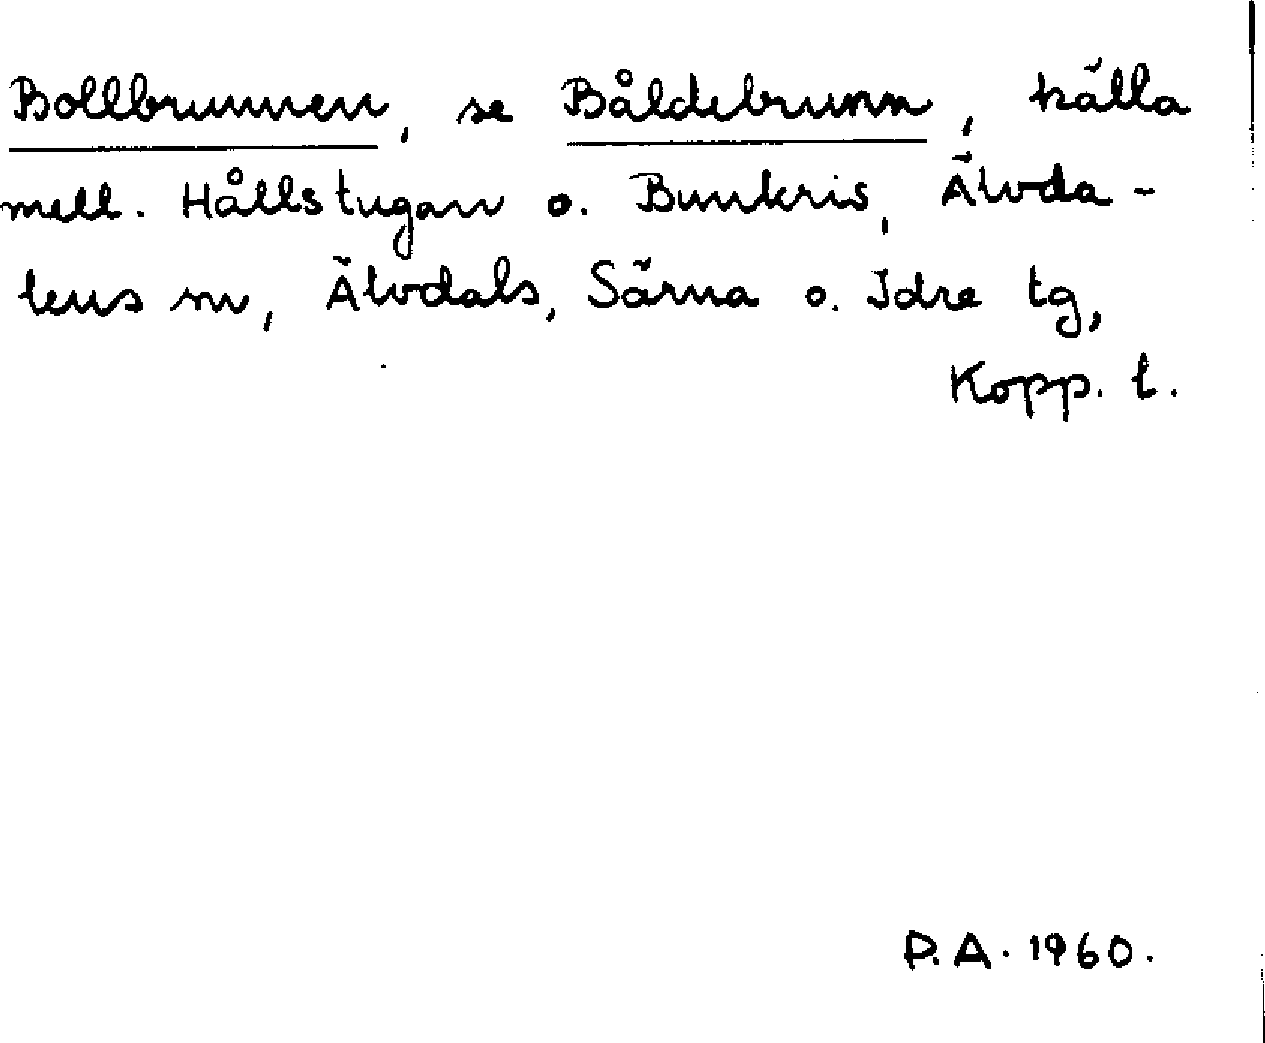 Bollbrunnen, se Båldebrunn, källa
mell. Hållstugan o. Bunkris, Älvda-
lens sn, Älvdals, Särna o. Idre tg,
Kopp. l.
P.A. 1960.